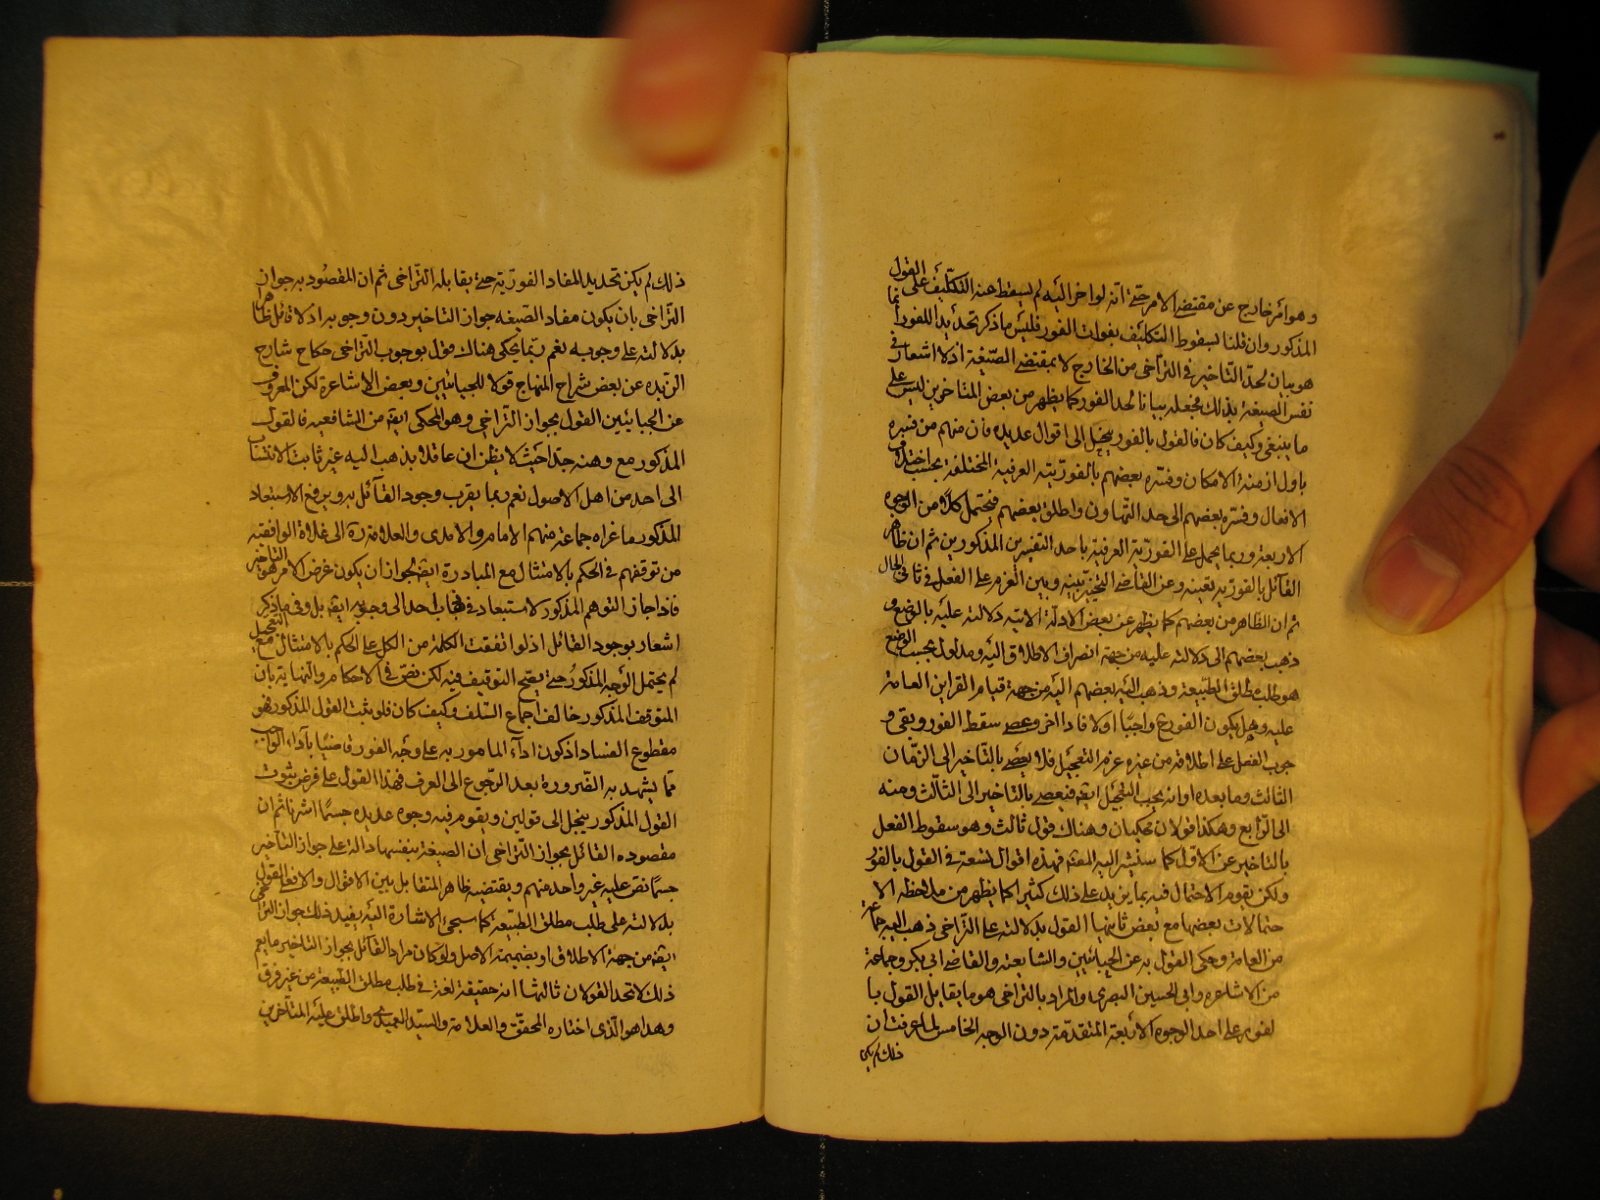 وهو أمر خارج عن مقتضى الامر حتى انه لو اخر اليه لم يسقط عنه التكليف على القول
المذكور وان قلنا بسقوط التكليف بفوات الفور فليس ما ذكر تحديدا للفور انما
هو بيان لحد التاخير في التراخى من الخارج لا بمقتضى الصيغة اذ لا اشعار في
نفس الصيغة بذلك فجعله بيانا لحد الفور كما يظهر من بعض المتاخرين ليس على
ما ينبغى وكيف كان فالقول بالفور ينحل الى اقوال عديده فان منهم من فسره
باول ازمنة الامكان وفسره بعضهم بالفورية العرفية المختلفة بحسب اختلاف
الافعال وفسره بعضهم الى حد التهاون واطلق بعضهم فيحتمل كلا من الوجوه
الاربعة وربما يحمل على الفورية العرفية باحد التفسيرين المذكورين ثم ان ظاهر
القائل بالفورية تعينه وعن القاضى التخيير بينه وبين العزم على الفعل في ثانى الحال
ثم ان الظاهر من بعضهم كما يظهر عن بعض الادلة الاتية دلالته عليه بالوضع و
ذهب بعضهم الى دلالته عليه من جهة انصراف الاطلاق اليه ومدلوله بحسب الوضع
هو طلب مطلق الطبيعة وذهب اليه بعضهم اليه من جهة قيام القراين العامة
عليه وهل يكون الفور واجبا اولا فاذا اخر وعصى سقط الفور وبقى و
جوب الفعل على اطلاقه من غيره عزم التعجيل فلا يعصى بالتاخير الى الزمان
الثالث وما بعده او انه يجب التعجيل ايضا فيعصى بالتاخير الى الثالث ومنه
الى الرابع وهكذا قولان محكيان وهناك قول ثالث وهو سقوط الفعل
بالتاخير عن الاول كما سنشير اليه انشم فهذه اقوال تسعة في القول بالفور
ولكن يقوم الاحتمال فيه بما يزيد على ذلك كثيرا كما يظهر من ملاحظه الا
حتمالات بعضها مع بعض ثانيها القول بدلالته على التراخى ذهب اليه جماعة
من العامة وحكى القول به عن الجبائيين والشافعية والقاضى ابى بكر وجماعة
من الاشاعره وابى الحسين البصرى والمراد بالتراخى هو ما يقابل القول با
لفور على احد الوجوه الاربعة المتقدمة دون الوجه الخامس لما عرفت ان
ذلك لم يكن
ذلك لم يكن تحديدا لمفاد الفورية حتى يقابله التراخى ثم ان المقصود به جواز
التراخى بان يكون مفاد الصيغه جواز التاخير دون وجوبه اذ لا قائل ظاهرا
بدلالته على وجوبه نعم ربما يحكى هناك قول بوجوب التراخى حكاه شارح
الزبده عن بعض شراح المنهاج قولا للجبائيين وبعض الاشاعرة لكن المعروف
عن الجبائيين القول بجواز التراخى وهو المحكى ايضا من الشافعيه فالقول
المذكور مع وهنه جدا حيث لا يظن ان عاقلا يذهب اليه غير ثابت الانتساب
الى احد من اهل الاصول نعم ربما يقرب وجود القائل به ويرفع الاستبعاد
المذكور ما عزاه جماعة منهم الامام والامدى والعلامة ره الى غلاة الواقفيه
من توقفهم في الحكم بالامتثال مع المبادرة ايضا لجواز ان يكون غرض الامر هو التاخير
فاذا جاز التوهم المذكور لا استبعاد في ذهاب احد الى وجوبه ايضا بل وفى ما ذكر
اشعار بوجود القائل اذ لو اتفقت الكلمة من الكل على الحكم بالامتثال مع التعجيل
لم يحتمل الوجه المذكور حتى يصح التوقيف فيه لكن نص في الاحكام والنهاية بان
المتوقف المذكور خالف اجماع السلف وكيف كان فلو ثبت القول المذكور فهو
مقطوع الفساد اذ كون اداء المامور به على وجه الفور قاضيا باداء الواجب
مما يشهد به الضرورة بعد الرجوع الى العرف فهذا القول على فرض ثبوت
القول المذكور ينحل الى قولين ويقوم فيه وجوه عديده حسبما اشرنا ثم ان
مقصوده القائل بجواز التراخى ان الصيغة بنفسها دالة على جواز التاخير
حسبما نص عليه غير واحد منهم ويقتضيه ظاهر المتقابل بين الاقوال والا فالقول
بدلالته على طلب مطلق الطبيعة كما سيجئ الاشارة اليه يفيد ذلك جواز التراخى
ايضا من جهة الاطلاق او بضميمة الاصل ولو كان مراد القائل بجواز التاخير ما يعم
ذلك لاتحد القولان ثالثها انه حقيقة لغة في طلب مطلق الطبيعة من غير فرق
وهذا هو الذى اختاره المحقق والعلامة والسيد العميدى واطلق عليه المتاخرين